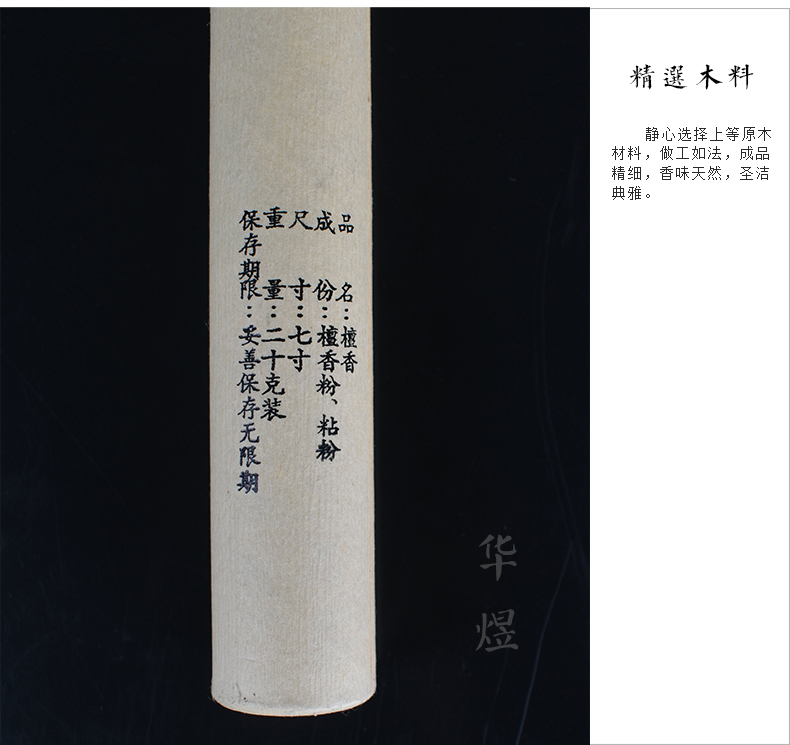 品名：檀香
成份：檀香粉、粘粉
尺寸：七寸
重量：二十克装
保存期限：妥善保存无限期
华煜
精選木料
静心选择上等原木
材料，做工如法，成品
精细，香味天然，圣洁
典雅。